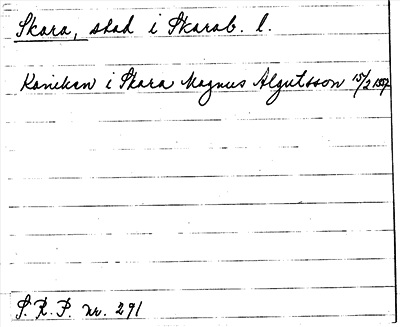 Skara, stad i Skarab. l.
Kaniken i Skara Magnus Algutsson 15/2 1357
S. R. P. nr. 291